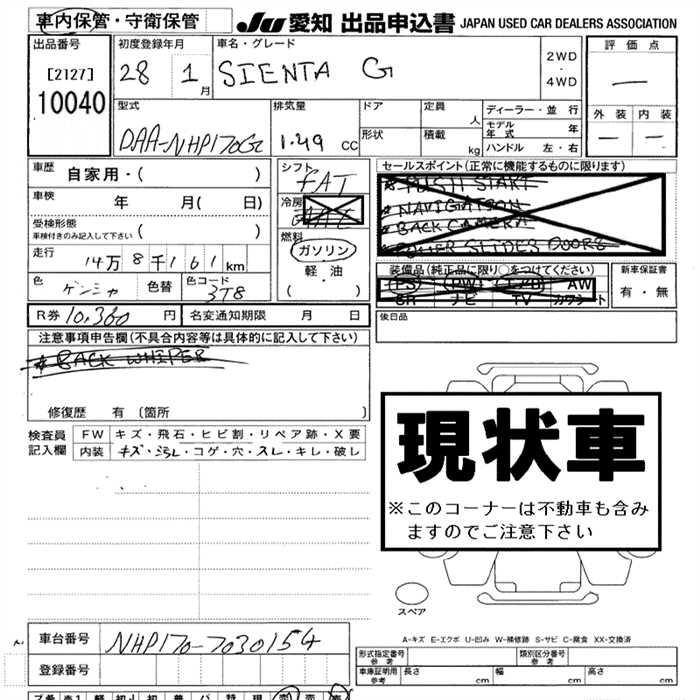 車内保管・守衛保管 JU 愛知 出品申込書 JAPAN USED CAR DEALERS ASSOCIATION
出品番号 初度登録年月 車名・グレード 評価点
[2127] 28 1月 SIENTA G 2WD・4WD —
10040 外装 内装
型式 排気量 ドア 定員 人 ディーラー・並行
DAA-NHP170G 1.49 CC 形状 積載 kg モデル年式 年
ハンドル 左・右 — —
車歴 自家用・( ) シフト FAT セールスポイント(正常に機能するものに限ります)
車検 年 月( 日) 冷房 PUSH START
NAVIGATION
受検形態 車検付きのみ記入して下さい ( ) 燃料 BACK CAMERA
ガソリン POWER SLIDES DOORS
走行 14万8千161km 軽・油 装備品(純正品に限り○をつけてください) 新車保証書
色 ゲンシャ 色替 色コード 3T8 ( ) PS PW エアB AW 有・無
SR ナビ TV カワシート
R券 10,360円 名変通知期限 月 日 後日品
注意事項申告欄(不具合内容等は具体的に記入して下さい)
BACK WHIPER
修復歴 有 〔箇所 〕
検査員 FW キズ・飛石・ヒビ割・リペア跡・X要
記入欄 内装 キズ・汚レ・コゲ・穴・スレ・キレ・破レ
現状車
※このコーナーは不動車も含み
ますのでご注意下さい
スペア
A-キズ E-エクボ U-凹み W-補修跡 S-サビ C-腐食 XX-交換済
車台番号 NHP170-7030154 形式指定番号 参考 類別区分番号 参考
登録番号 車庫証明用 参考 長さ cm 幅 cm 高さ cm